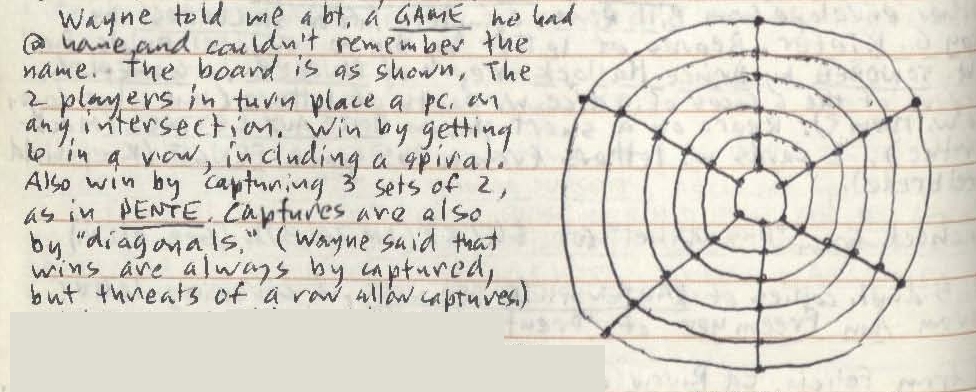 Wayne told me abt. a GAME he had
@ home, and couldn't remember the
name. The board is as shown. The
2 players in turn place a pc. on
any intersection. Win by getting
6 in a row, including a spiral.
Also win by capturing 3 sets of 2,
as in PENTE. Captures are also
by "diagonals." (Wayne said that
wins are always by captured,
but threats of a row allow captures)